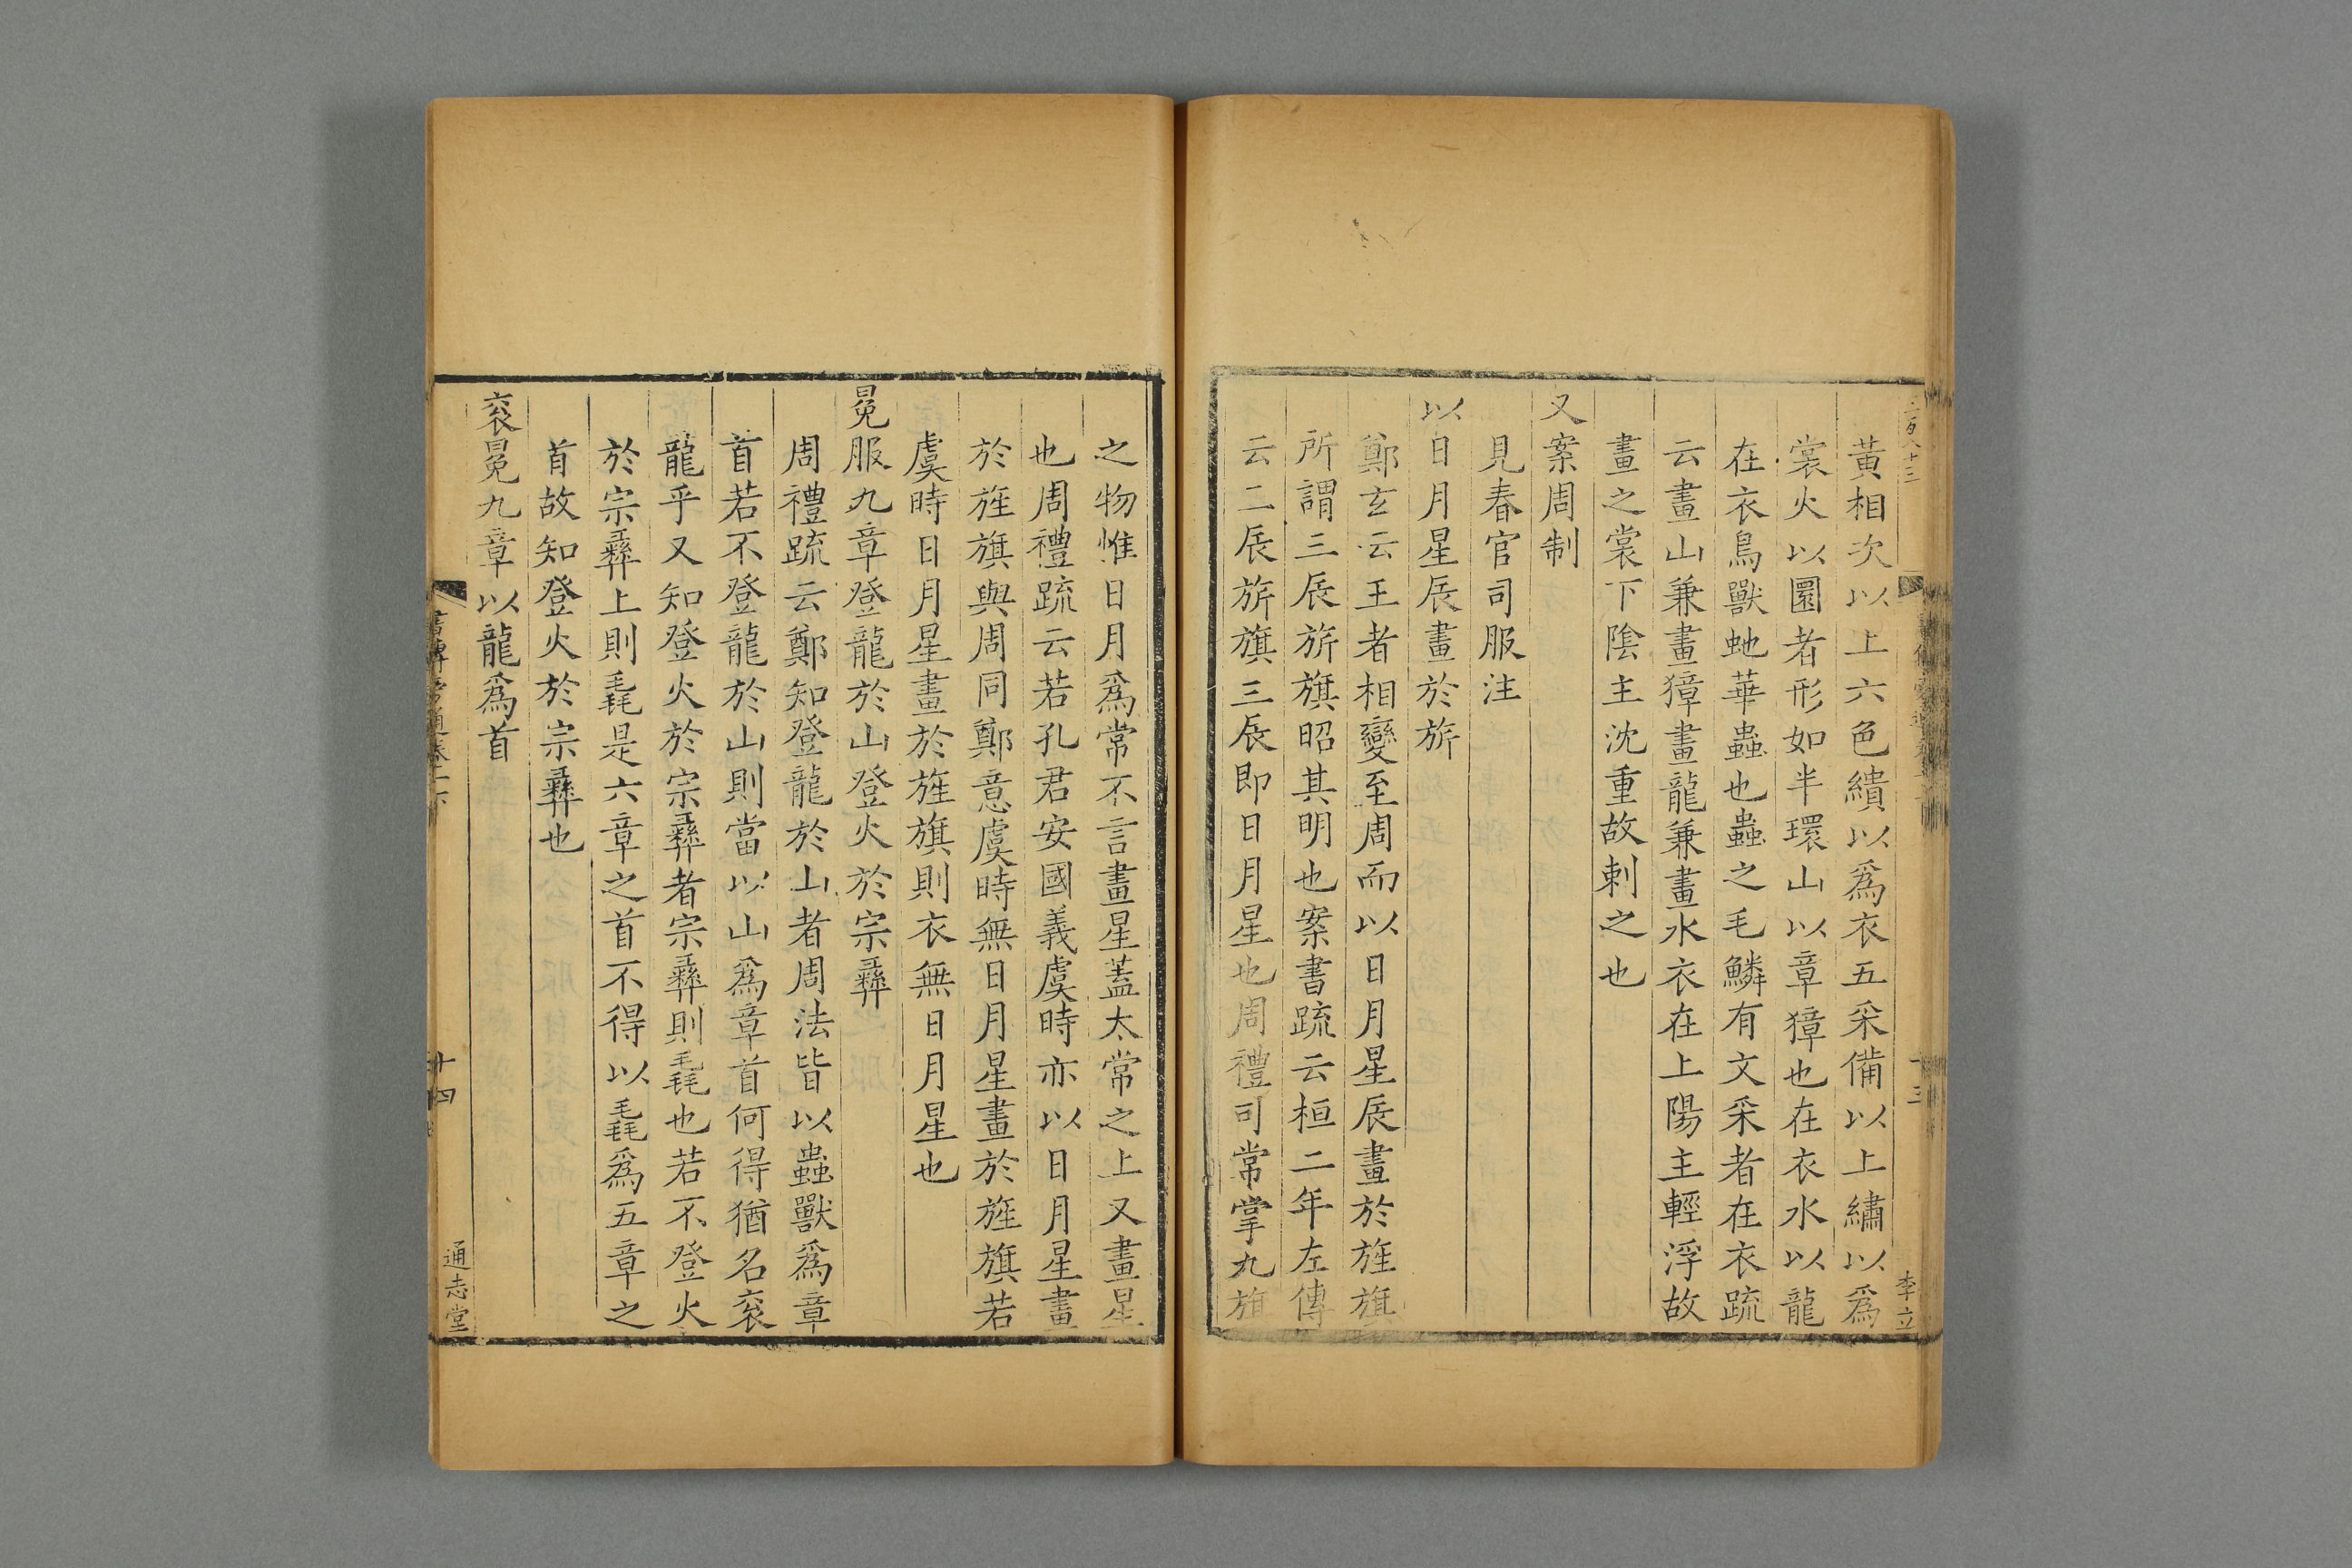 黃相次以上六色繢以爲衣五采備以上繡以爲
裳火以圜者形如半環山以章獐也在衣水以龍
在衣鳥獸虵華蟲也蟲之毛鱗有文采者在衣疏
云畫山兼畫獐畫龍兼畫水衣在上陽主輕浮故
畫之裳下陰主沈重故刺之也
又案周制
見春官司服注
以日月星辰畫於旂
鄭玄云王者相變至周而以日月星辰畫於旌旗
所謂三辰旂旗昭其明也案書疏云桓二年左傳
云二辰旂旗三辰即日月星也周禮司常掌九旗
之物惟日月爲常不言畫星蓋太常之上又畫星
也周禮疏云若孔君安國義虞時亦以日月星畫
於旌旗與周同鄭意虞時無日月星畫於旌旗若
虞時日月星畫於旌旗則衣無日月星也
冕服九章登龍於山登火於宗彞
周禮疏云鄭知登龍於山者周法皆以蟲獸爲章
首若不登龍於山則當以山爲章首何得猶名衮
龍乎又知登火於宗彞者宗彞則毳也若不登火
於宗彞上則毳是六章之首不得以毳爲五章之
首故知登火於宗彞也
衮冕九章以龍爲首
十四
通志堂
李立